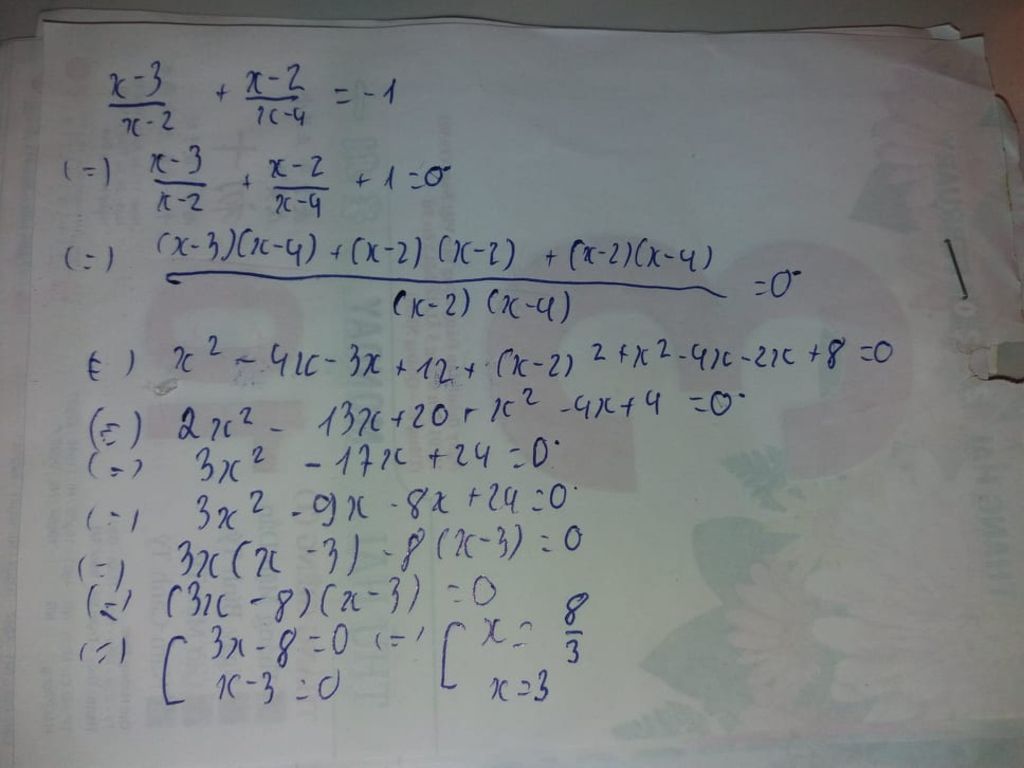 x-3/x-2 + x-2/x-4 = -1
(=) x-3/x-2 + x-2/x-4 + 1 = 0
(=) (x-3)(x-4) + (x-2)(x-2) + (x-2)(x-4)/(x-2)(x-4) = 0
(=) x² - 4x - 3x + 12 + (x-2)² + x² - 4x - 2x + 8 = 0
(=) 2x² - 13x + 20 + x² - 4x + 4 = 0
(=) 3x² - 17x + 24 = 0
(=) 3x² - 9x - 8x + 24 = 0
(=) 3x(x-3) - 8(x-3) = 0
(=) (3x-8)(x-3) = 0
(=) [ 3x-8=0 (=) [ x = 8/3
x-3=0 x=3